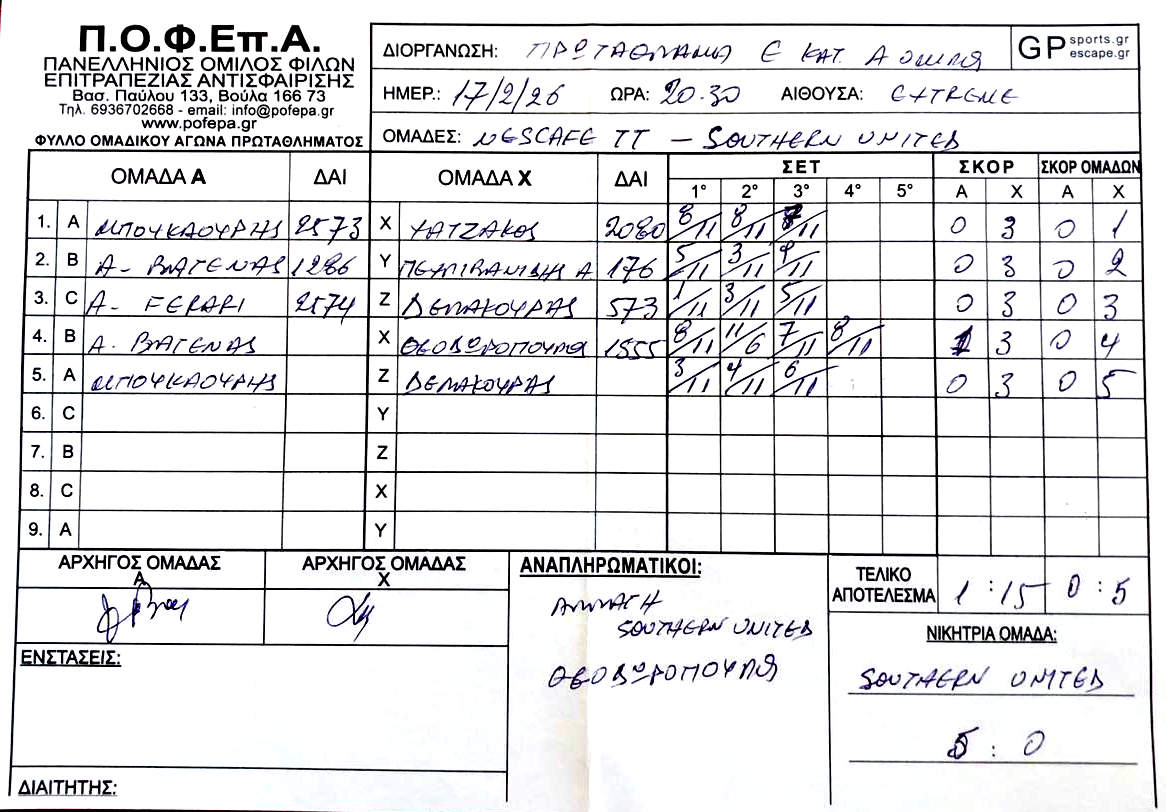 Π.Ο.Φ.Επ.Α.
ΠΑΝΕΛΛΗΝΙΟΣ ΟΜΙΛΟΣ ΦΙΛΩΝ
ΕΠΙΤΡΑΠΕΖΙΑΣ ΑΝΤΙΣΦΑΙΡΙΣΗΣ
Βασ. Παύλου 133, Βούλα 166 73
Τηλ. 6936702668 - email: info@pofepa.gr
www.pofepa.gr
ΦΥΛΛΟ ΟΜΑΔΙΚΟΥ ΑΓΩΝΑ ΠΡΩΤΑΘΛΗΜΑΤΟΣ
ΔΙΟΡΓΑΝΩΣΗ: ΠΡΩΤΑΘΛΗΜΑ Ε ΚΑΤ. Α ΟΜΙΛΟΣ
GP sports.gr escape.gr
ΗΜΕΡ.: 17/2/26 ΩΡΑ: 20.30 ΑΙΘΟΥΣΑ: EXTREME
ΟΜΑΔΕΣ: NESCAFE TT - SOUTHERN UNITED
ΟΜΑΔΑ Α ΔΑΙ ΟΜΑΔΑ Χ ΔΑΙ ΣΕΤ ΣΚΟΡ ΣΚΟΡ ΟΜΑΔΩΝ
1° 2° 3° 4° 5° Α Χ Α Χ
1. A ΜΠΟΥΚΑΟΥΡΗΣ 2573 X ΧΑΤΖΑΚΟΣ 2080 8/11 8/11 8/11 0 3 0 1
2. B Α. ΒΑΓΕΝΑΣ 1286 Y ΠΕΧΛΙΒΑΝΙΔΗΣ Α 176 5/11 3/11 9/11 0 3 0 2
3. C Α. FERARI 2574 Z ΔΕΛΑΚΟΥΡΑΣ 573 1/11 3/11 5/11 0 3 0 3
4. B Α. ΒΑΓΕΝΑΣ X ΘΕΟΔΩΡΟΠΟΥΛΟΣ 1555 8/11 11/6 7/11 8/11 1 3 0 4
5. A ΜΠΟΥΚΑΟΥΡΗΣ Z ΔΕΛΑΚΟΥΡΑΣ 3/11 4/11 6/11 0 3 0 5
6. C Y
7. B Z
8. C X
9. A Y
ΑΡΧΗΓΟΣ ΟΜΑΔΑΣ Α
ΑΡΧΗΓΟΣ ΟΜΑΔΑΣ Χ
ΑΝΑΠΛΗΡΩΜΑΤΙΚΟΙ:
ΑΛΛΑΓΗ
SOUTHERN UNITED
ΘΕΟΔΩΡΟΠΟΥΛΟΣ
ΤΕΛΙΚΟ ΑΠΟΤΕΛΕΣΜΑ 1 : 15 0 : 5
ΝΙΚΗΤΡΙΑ ΟΜΑΔΑ:
SOUTHERN UNITED
5 : 0
ΕΝΣΤΑΣΕΙΣ:
ΔΙΑΙΤΗΤΗΣ: